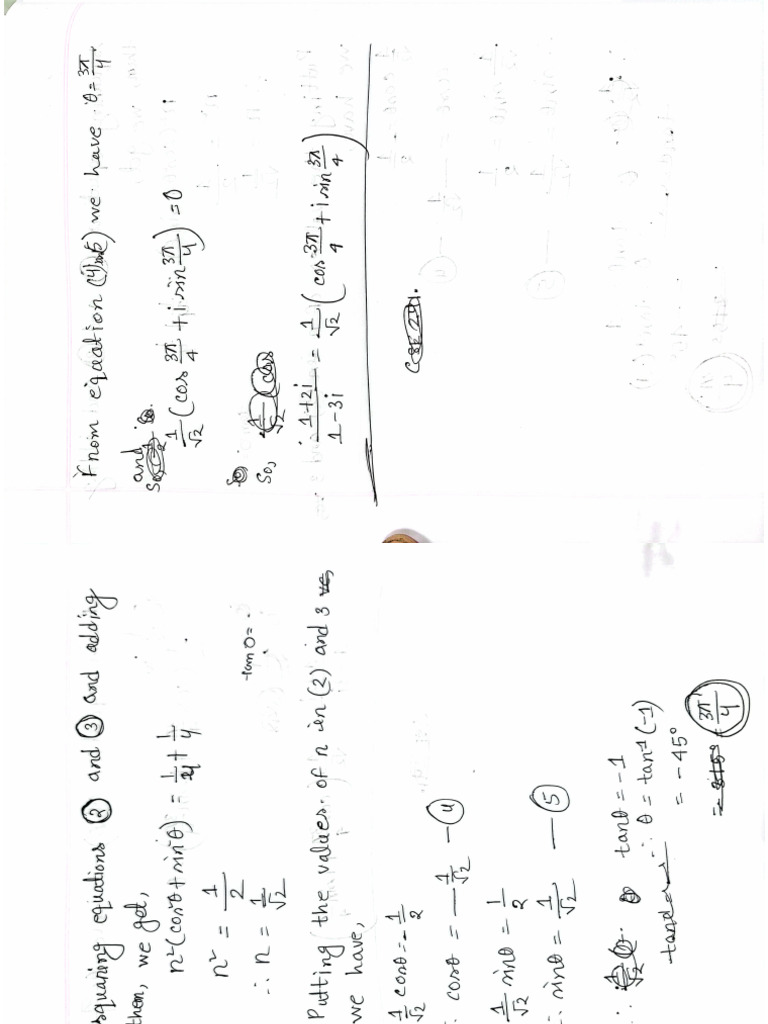 squaring equations (2) and (3) and adding
then, we get,
n²(cos²θ + sin²θ) = 1/4 + 1/4
n² = 1/2
∴ n = 1/√2
tanθ = .
Putting the values of n in (2) and 3
we have,
1/√2 cosθ = -1/2
∴ cosθ = -1/√2 — (4)
1/√2 sinθ = 1/2
∴ sinθ = 1/√2 — (5)
∴ tanθ = -1
∴ θ = tan⁻¹(-1)
= -45°
= 3π/4
From equation (4) and 5 we have θ = 3π/4
and
1/√2 (cos 3π/4 + i sin 3π/4) = 0
So,
(1+2i)/(1-3i) = 1/√2 (cos 3π/4 + i sin 3π/4)